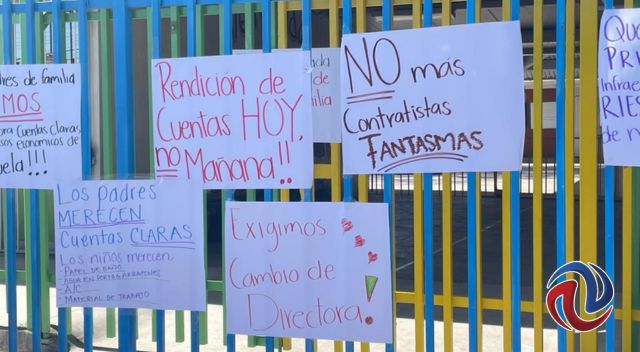 dres de familia
MOS
ra cuentas claras
sos economicos de
ela!!!
Rendición de
Cuentas HOY,
no Mañana!!
da
de
ilia
NO más
Contratistas
FANTASMAS
Que
PRI
Infrae
RIE
de n
Los padres
MERECEN
Cuentas CLARAS
Los niños merecen
-PAPEL DE BAÑO
-A/C
-MATERIAL DE TRABAJO
Exigimos
Cambio de
Directora!